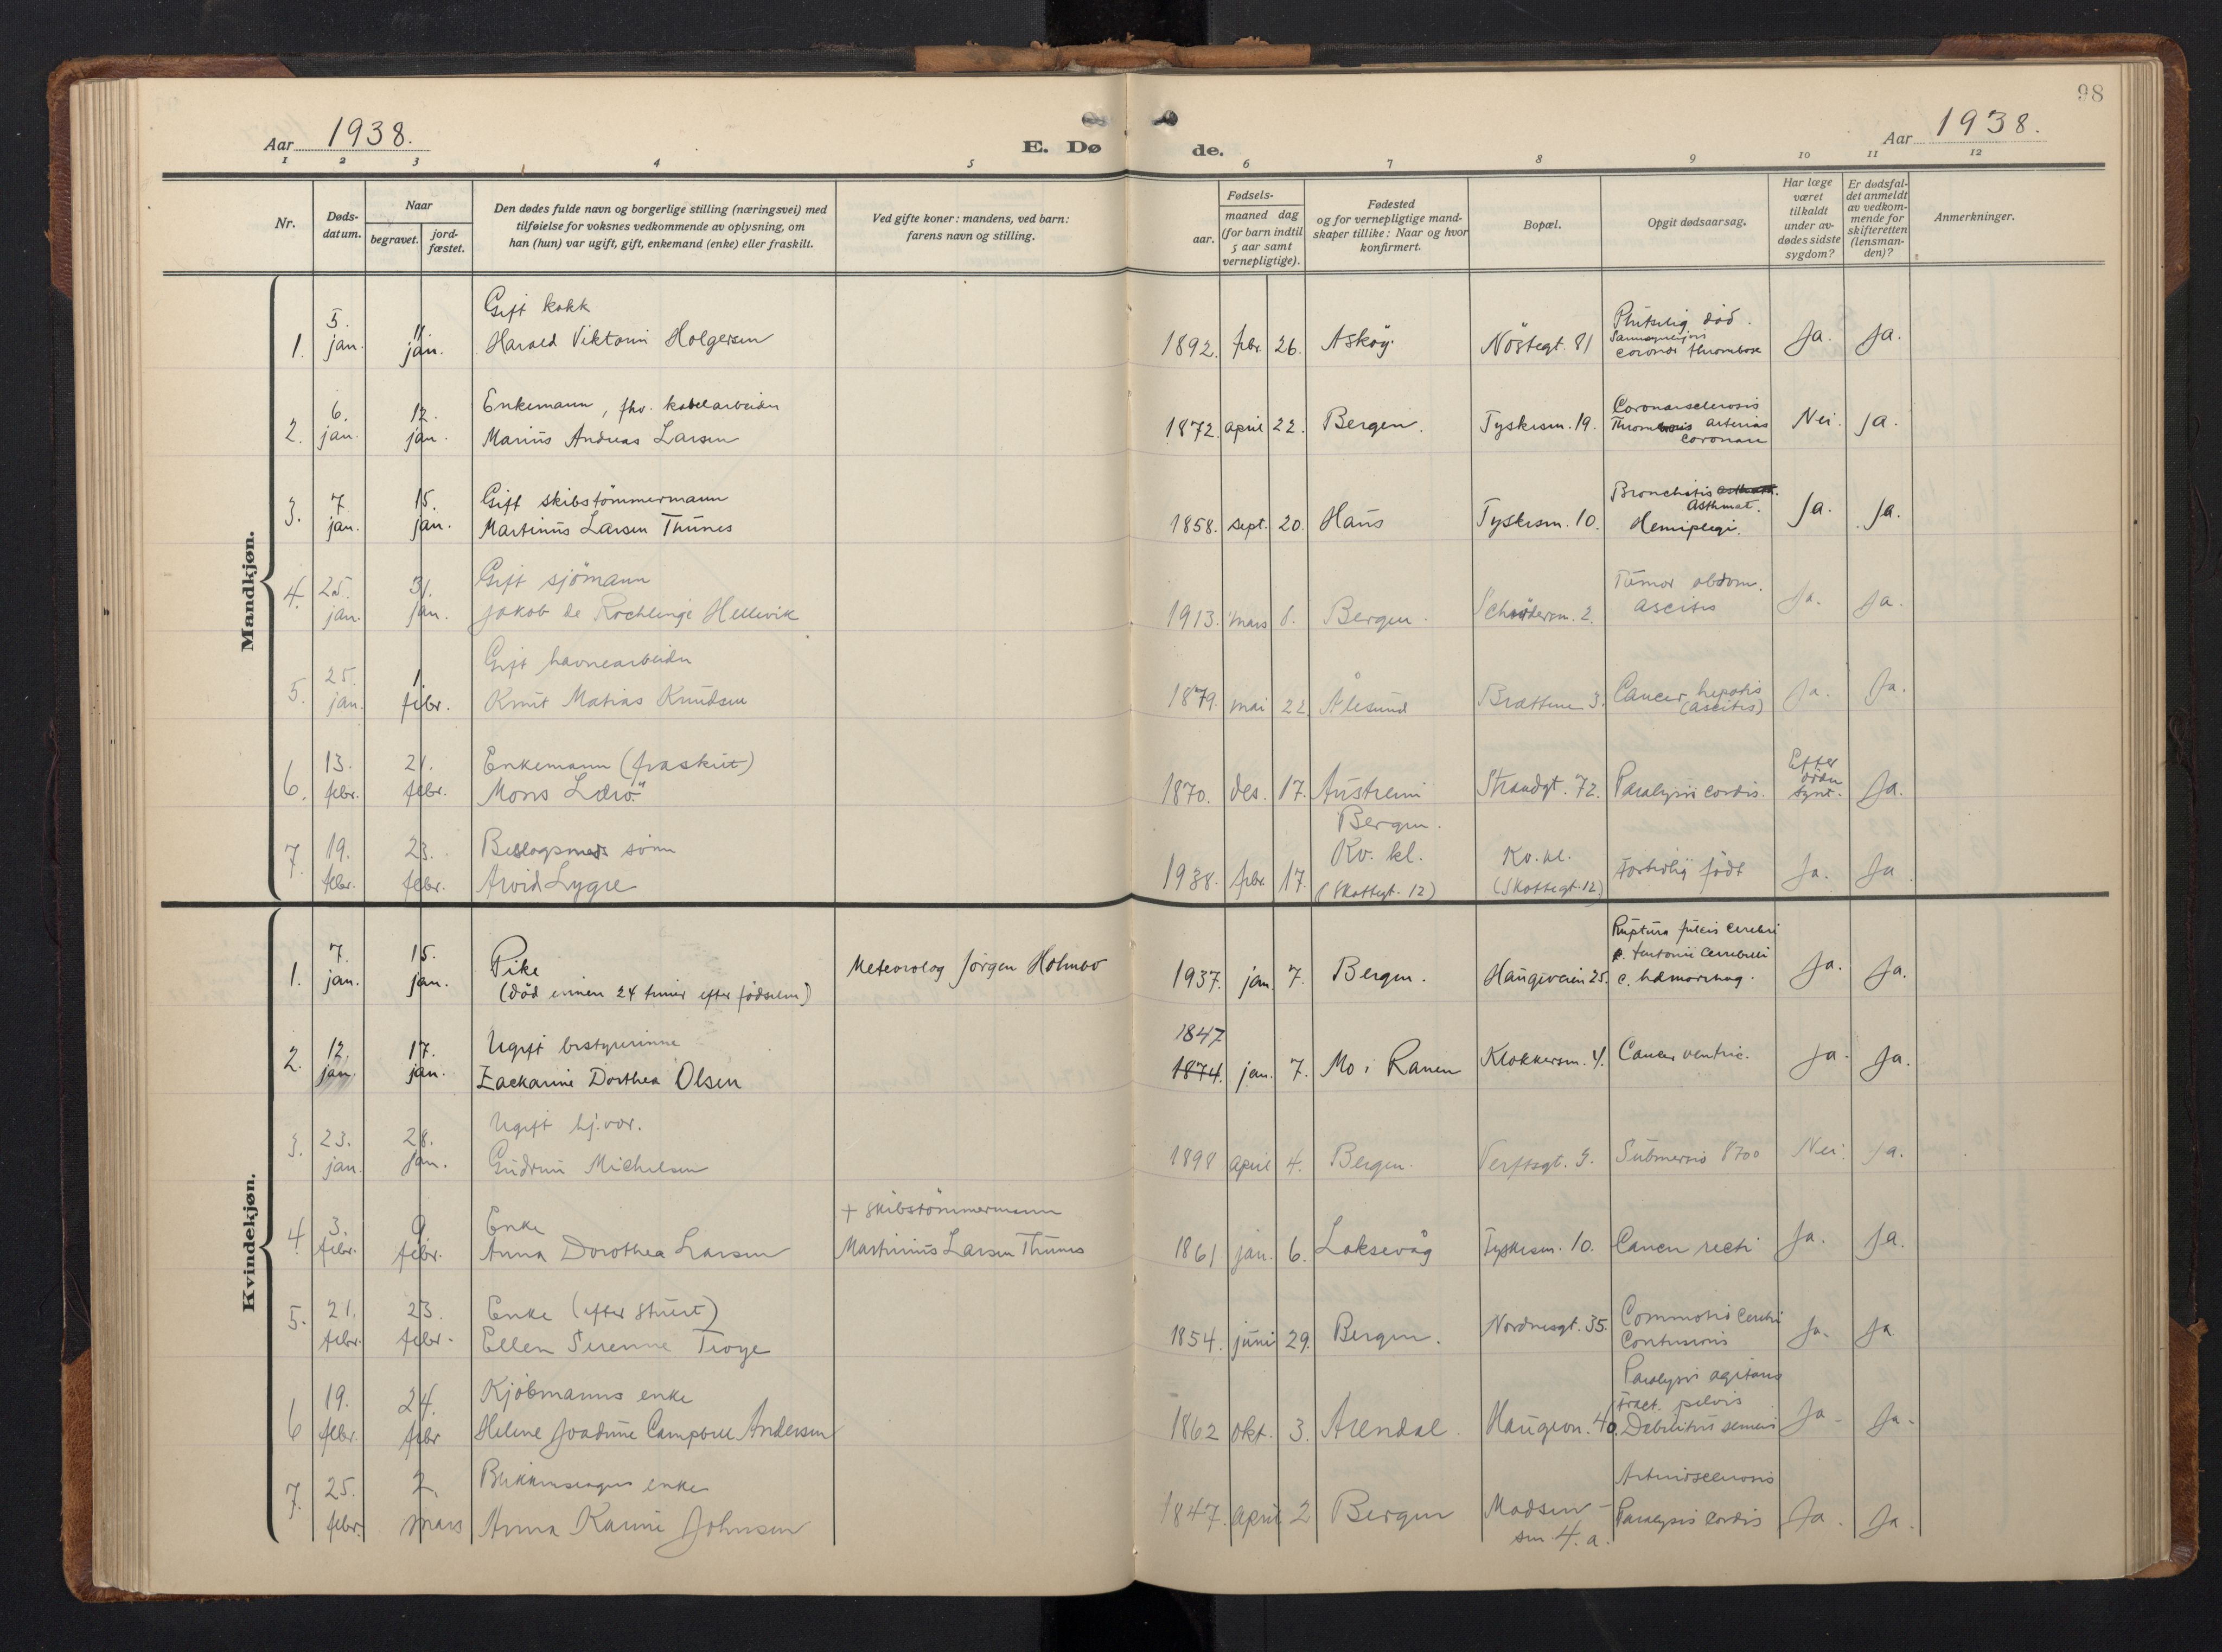 98
Aar 1938.
E. Dø de.
Aar 1938.
1 2 3 4 5 6 7 8 9 10 11 12
Nr.
Døds-
datum.
Naar
begravet.
jord-
fæstet.
Den dødes fulde navn og borgerlige stilling (næringsvei) med
tilføielse for voksnes vedkommende av oplysning, om
han (hun) var ugift, gift, enkemand (enke) eller fraskilt.
Ved gifte koner: mandens, ved barn:
farens navn og stilling.
aar.
Fødsels-
maaned dag
(for barn indtil
5 aar samt
vernepligtige).
Fødested
og for vernepligtige mand-
skaper tillike: Naar og hvor
konfirmert.
Bopæl.
Opgit dødsaarsag.
Har læge
været
tilkaldt
under av-
dødes sidste
sygdom?
Er dødsfal-
det anmeldt
av vedkom-
mende for
skifteretten
(lensman-
den)?
Anmerkninger.
Mandkjøn.
Gift kokk
1. 5. jan. 11. jan. Harald Viktorin Holgersen 1892. febr. 26. Askøy. Nöstegt. 81 Plutselig död. coronar thrombose Ja. Ja.
Enkemann, fhv. kabelarbeider
2. 6. jan. 12. jan. Marius Andreas Larsen 1872. april 22. Bergen. Tyskesm. 19. Coronarsclerosis Thrombosis arterias coronare Nei. Ja.
Gift skibstömmermann
3. 7. jan. 15. jan. Martinus Larsen Thunes 1858. sept. 20. Haus Tyskesm. 10. Bronchitis Asthmat. Hemiplegi. Ja. Ja.
Gift sjömann
4. 25. jan. 31. jan. Jakob de Rochlenge Hellevik 1913. mars 8. Bergen. Schröдersm. 2. Tumor abdom. ascites Ja. Ja.
Gift havnearbeider
5. 25. jan. 1. febr. Knut Matias Knudsen 1879. mai 22. Ålesund Brattene 3. Cancer hepatis (ascites) Ja. Ja.
Enkemann (fraskilt)
6. 13. febr. 21. febr. Mons Lerö 1870. des. 17. Austreim Strandgt. 72. Paralysis cordis. Efter döden synt. Ja.
Beslagsmeds sönn
7. 19. febr. 23. febr. Arvid Lygre 1938. febr. 17. Bergen. Kv. kl. (Skottegt. 12) Kv. kl. (Skottegt. 12) Fortidlig födt Ja. Ja
Kvindekjøn.
1. 7. jan. 15. jan. Pike
(död innen 24 timer efter födselen)
Meteorolog Jörgen Holmbo 1937. jan. 7. Bergen. Haugeveien 25. Ruptura falcis cerebri c. tentorii cerebelli c. hæmorrhag. Ja. Ja.
Ugift bestyrerinne
2. 12. jan. 17. jan. Zackarine Dorthea Olsen 1847 1874. jan. 7. Mo i Ranen Klokkersm. 4. Cancer ventric. Ja. Ja.
Ugift hj.vær.
3. 23. jan. 28. jan. Gudrun Michelsen 1898 april 4. Bergen. Verftsgt. 9. Submersio Nei. Ja.
Enke
4. 3. febr. 9. febr. Anna Dorothea Larsen + skibstömmermann Martinius Larsen Thunes 1861 jan. 6. Laksevåg Tyskesm. 10. Cancer recti Ja. Ja.
Enke (efter stuert)
5. 21. febr. 23. febr. Ellen Serenne Troye 1854. juni 29. Bergen. Nordnesgt. 35. Commotio cerebri Contusionis Ja. Ja
Kjöbmanns enke
6 19. febr. 24. febr Helene Joadine Campbell Andersen 1862 okt. 3. Arendal. Haugevn. 40. Paralysis agitans Fract. pelvis Debilitas senilis Ja. Ja.
Blikkenslagers enke
7. 25. febr. 2. mars Anna Karine Johnsen 1847. april 2 Bergen Madsensm. 4. a. Arteriosclerosis Paralysis cordis Ja. Ja.